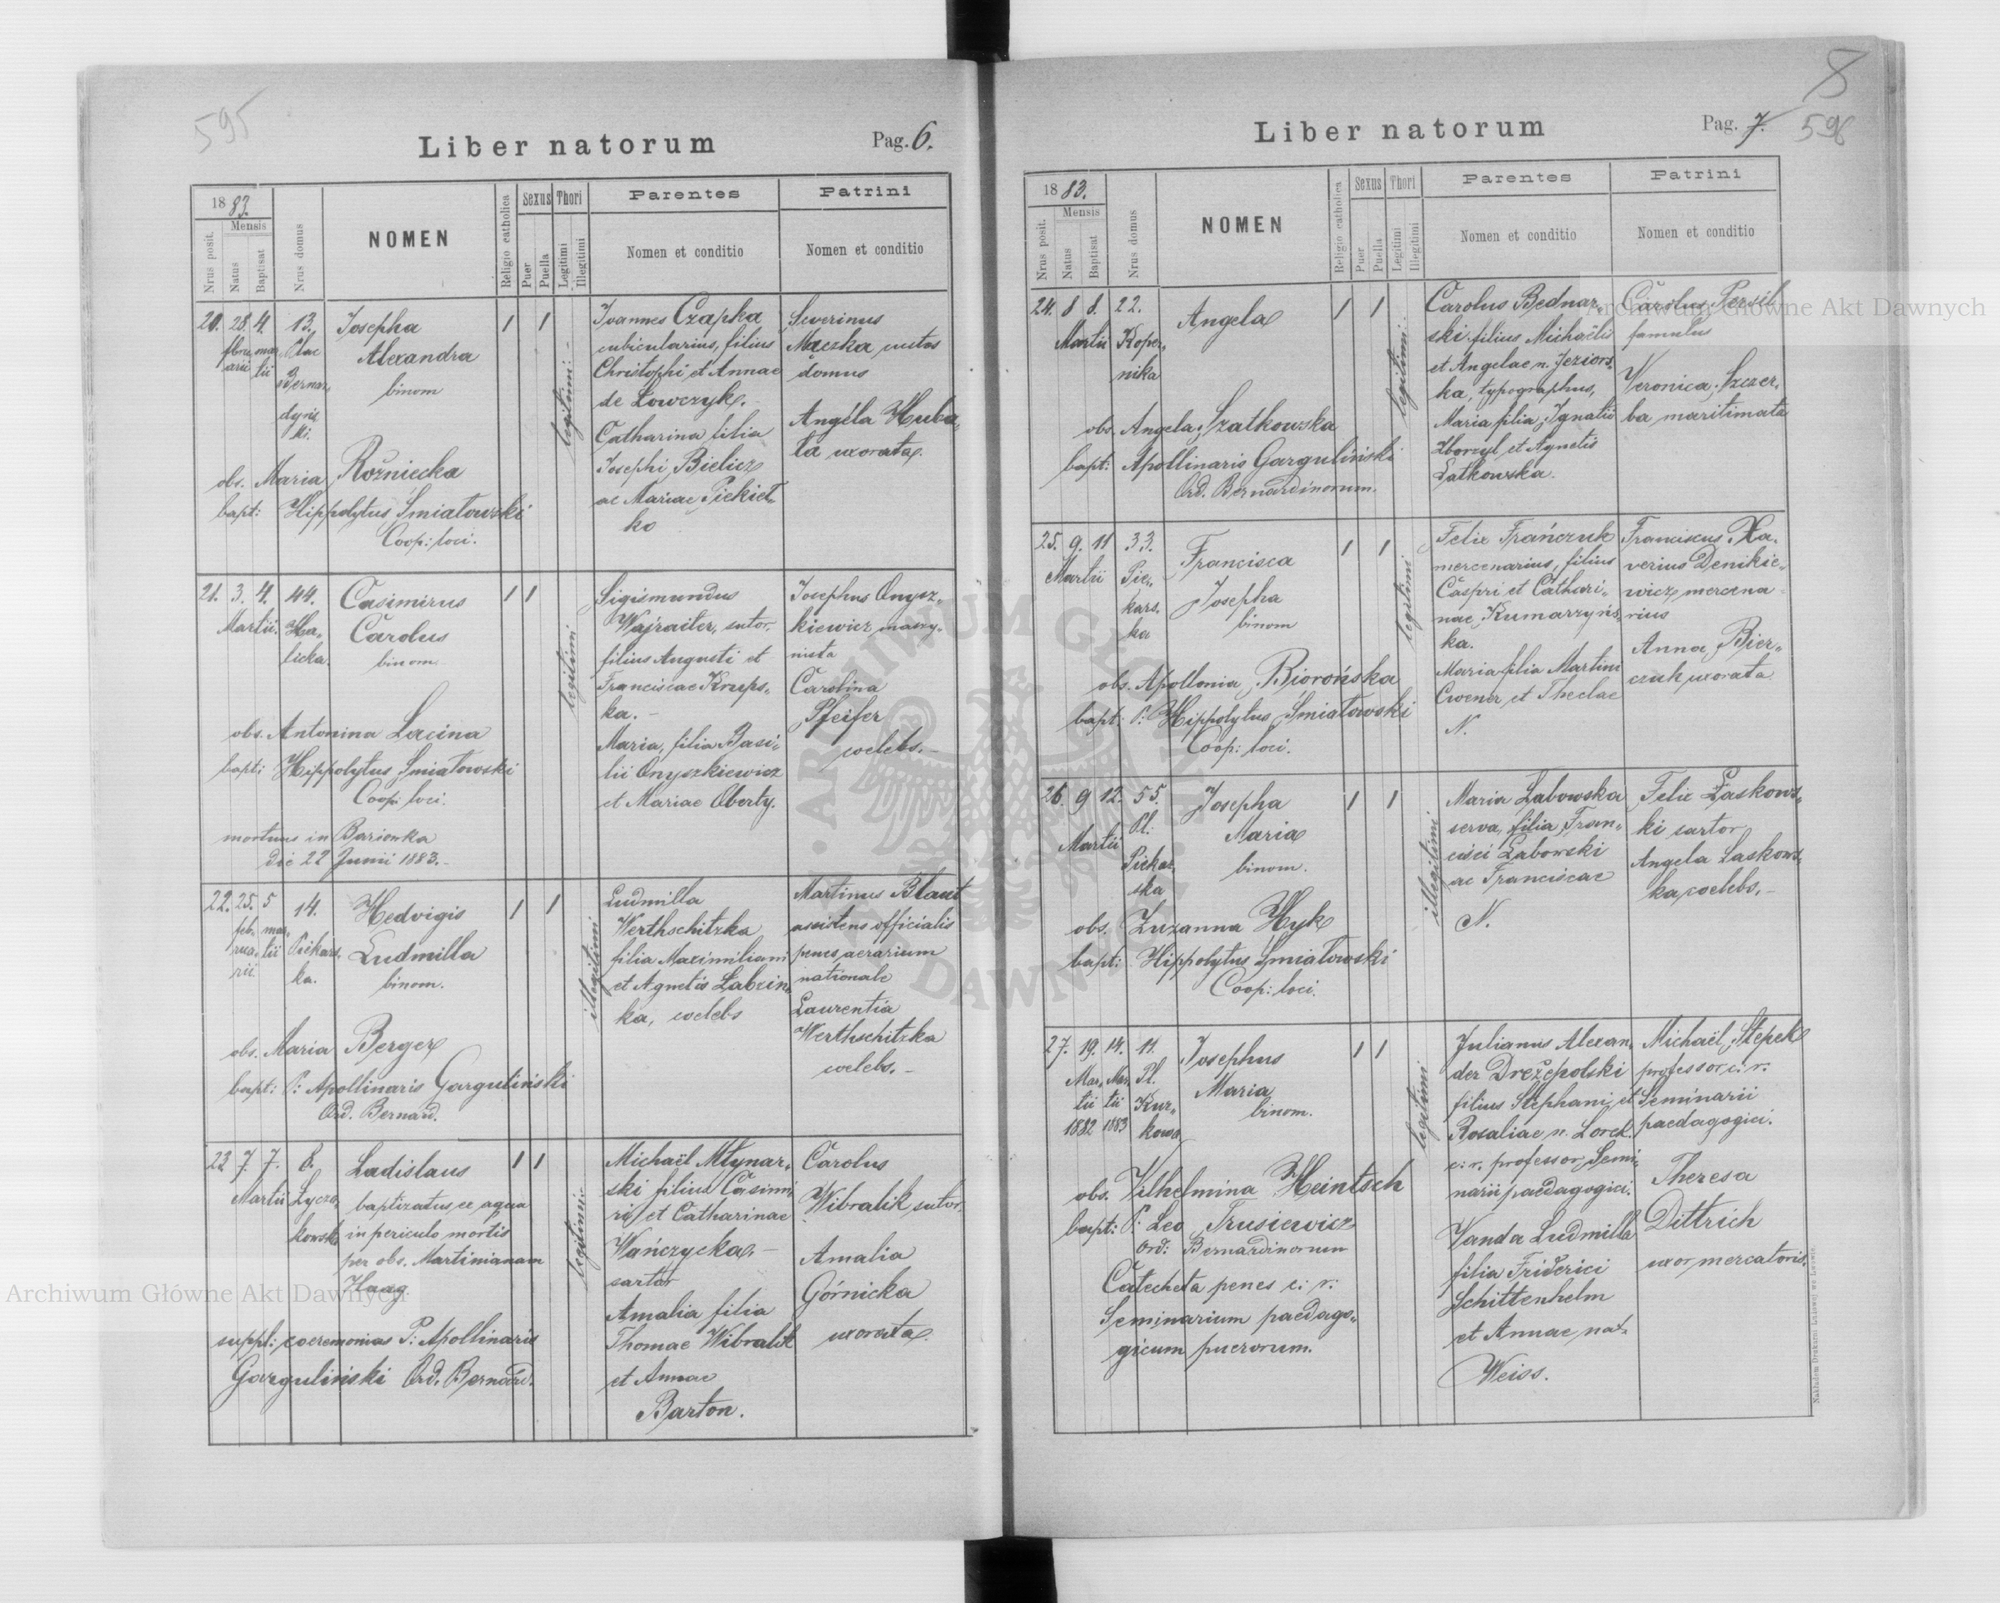 595
Liber natorum
Pag. 6.
1883.
Nrus posit.
Mensis
Natus
Baptisat
Nrus domus
NOMEN
Religio catholica
Sexus
Puer
Puella
Thori
Legitimi
Illegitimi
Parentes
Nomen et conditio
Patrini
Nomen et conditio
20. 28. 4. 13.
Plac
Bernar-
dyńs
ki.
Josepha
Alexandra
binom
1 1
legitimi
Joannes Czapka
cubicularius, filius
Christophi et Annae
de Łowczyk.
Catharina filia
Josephi Bielicz
ac Mariae Piekieł-
ko
Severinus
Maczka custos
domus
Angéla Huba-
ta uxorata.
obs. Maria Rożniecka
bapt: Hippolytus Śmiatowski
Coop: loci.
21. 3. 4. 44.
Martii.
Ha-
licka.
Casimirus
Carolus
binom
1 1
legitimi
Sigismundus
Wajraiter, sutor,
filius Augusti et
Franciscae Krups-
ka.
Maria, filia Basi-
lii Onyszkiewicz
et Mariae Oberty.
Josephus Onysz-
kiewicz maszy-
nista
Carolina
Pfeifer
coelebs.
obs. Antonina Lacina
bapt: Hippolytus Śmiatowski
Coop: loci.
mortuus in
die 22 Junii 1883.
22. 25. 5 14.
feb-
rua-
rii
mar-
tii
Piekars-
ka.
Hedvigis
Ludmilla
binom.
1 1
illegitimi
Ludmilla
Werthschitzka
filia Maximiliani
et Agnetis
ka, coelebs
Martinus Blaut
assistens officialis
penes aerarium
nationale
Laurentia
Werthschitzka
coelebs.
obs. Maria Berger
bapt: P: Apollinaris Garguliński
Ord. Bernard.
23 7. 7. 8.
Martii
Łycza-
kowska
Ladislaus
baptizatus ex aqua
in periculo mortis
per obs. Martinianam
Haag.
1 1
legitimi
Michaël Młynar-
ski filius Casimi-
ri et Catharinae
Wańczycka.
sartor
Amalia filia
Thomae Wibralik
et Annae
Barton.
Carolus
Wibralik sutor.
Amalia
Górnicka
uxorata.
suppl: coeremonias P: Apollinaris
Garguliński Ord. Bernard.
8
596
Liber natorum
Pag. 7.
1883.
Nrus posit.
Mensis
Natus
Baptisat
Nrus domus
NOMEN
Religio catholica
Sexus
Puer
Puella
Thori
Legitimi
Illegitimi
Parentes
Nomen et conditio
Patrini
Nomen et conditio
24. 8 8. 22.
Martii
Koper-
nika
Angela
1 1
legitimi
Carolus Bednar-
ski filius Michaëlis
et Angelae n. Jeziors-
ka, typographus,
Maria filia Ignatii
Zborzyl et Agnetis
Łatkowska.
Carolus Persil
famulus
Veronica Szczer-
ba maritimata
obs. Angela Szatkowska
bapt: Apollinaris Garguliński
Ord. Bernardinorum.
25. 9. 11 33.
Martii
Pie-
kars-
ka
Francisca
Josepha
binom
1 1
legitimi
Felix Frańczuk
mercenarius, filius
Caspri et Cathari-
nae Kumarzyńs-
ka.
Maria filia Martini
Cwener et Theclae
N.
Franciscus Xa-
verius Denikie-
wicz mercena-
rius
Anna Bier-
czuk uxorata
obs. Apollonia Biorońska
bapt. P: Hippolytus Śmiatowski
Coop: loci.
26. 9 12. 55.
Martii
Pl.
Piekar-
ska
Josepha
Maria
binom.
1 1
illegitimi
Maria Łabowska
serva, filia Fran-
cisci Łabowski
ac Franciscae
N.
Felix Łaskows-
ki sartor
Angela Laskows-
ka, coelebs.
obs. Zuzanna Hyk
bapt: Hippolytus Śmiatowski
Coop: loci.
27. 19. 14. 11.
Mar-
tii
1882
Mar-
tii
1883
Pl.
Kur-
kowa
Josephus
Maria
binom.
1 1
legitimi
Julianus Alexan-
der Dreżepolski
filius Stephani et
Rosaliae n. Lorek.
c. r. professor Semi-
narii paedagogici.
Vanda Ludmilla
filia Friderici
Schittenhelm
et Annae nat.
Weiss.
Michaël Stepek
professor c. r.
Seminarii
paedagogici.
Theresa
Dittrich
uxor mercatoris.
obs. Vilhelmina Heintsch
bapt: P: Leo Trusiewicz
Ord: Bernardinorum
Catecheta penes c. r.
Seminarium paedago-
gicum puerorum.
Archiwum Główne Akt Dawnych
Archiwum Główne Akt Dawnych
ARCHIWUM GŁÓWNE AKT DAWNYCH